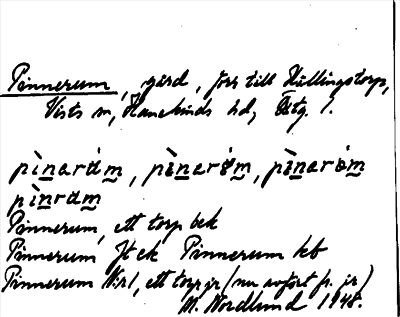 Pinnerum, gård, förr till Kullingstorp,
Vists sn, Hanekinds hd, Östg. l.
pìnarám, pìnarøm, pìnaròm
pìnrəm
Pinnerum, ett torp bek
Pinnerum Jt ek Pinnerum kb
Pinnerum N:r 1, ett torp jr (nu avfört fr. jr)
M. Nordlund 1948.